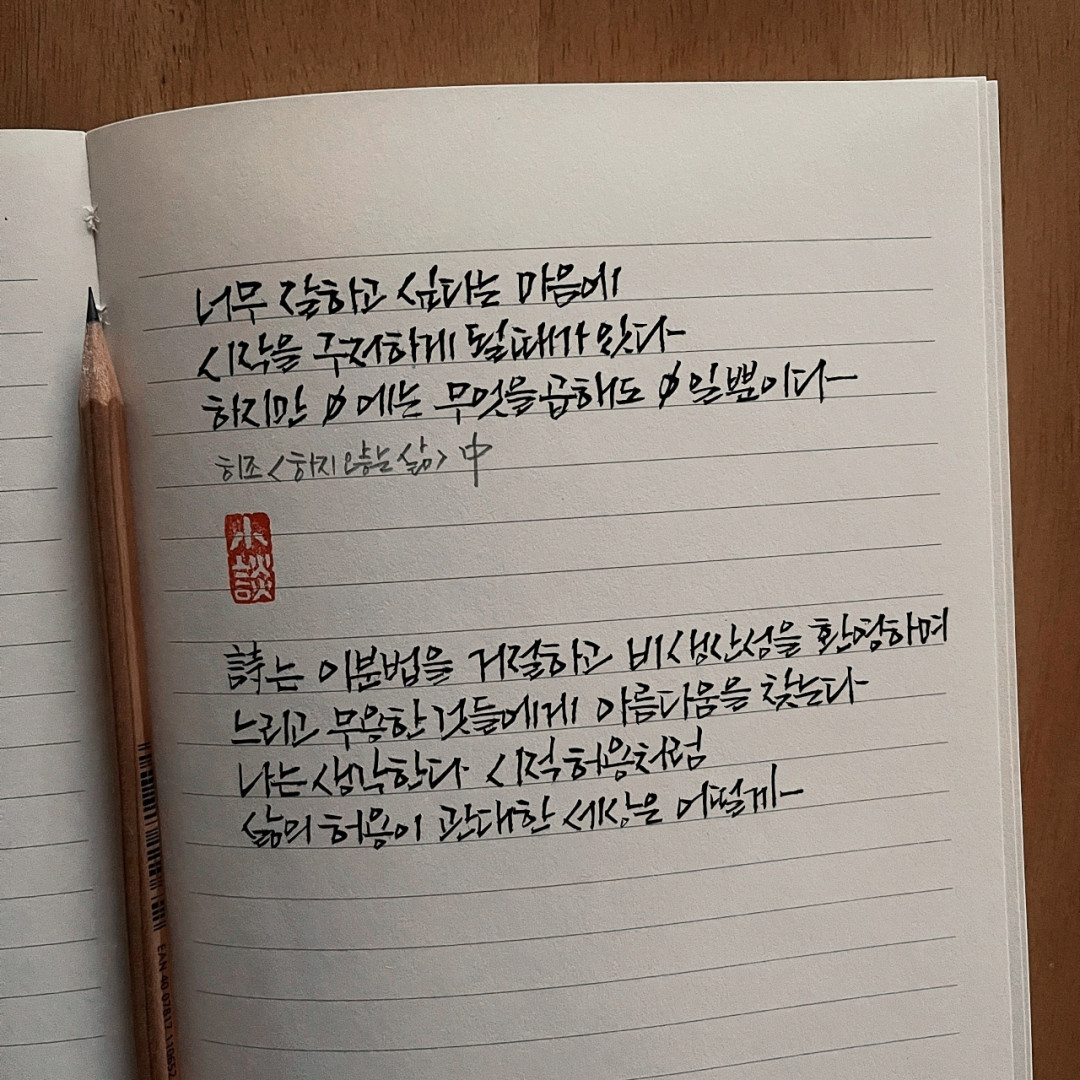 너무 잘하고 싶다는 마음에
시작을 주저하게 될때가 있다
하지만 0에는 무엇을곱해도 0일뿐이다
희조<하지 않는 삶>中
小談
詩는 이분법을 거절하고 비생산성을 환영하며
느리고 무용한 것들에게 아름다움을 찾는다
나는 생각한다 시적허용처럼
삶의 허용이 관대한 세상은 어떨까
EAN 40 07817 110652